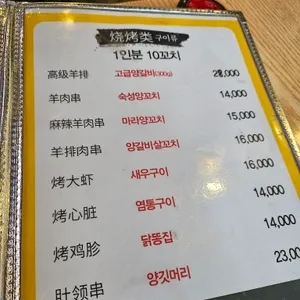 烧烤类 구이류
1인분 10꼬치
高级羊排 고급양갈비(300g) 28,000
羊肉串 숙성양꼬치 14,000
麻辣羊肉串 마라양꼬치 15,000
羊排肉串 양갈비살꼬치 16,000
烤大虾 새우구이 16,000
烤心脏 염통구이 14,000
烤鸡胗 닭똥집 14,000
肚领串 양깃머리 23,00